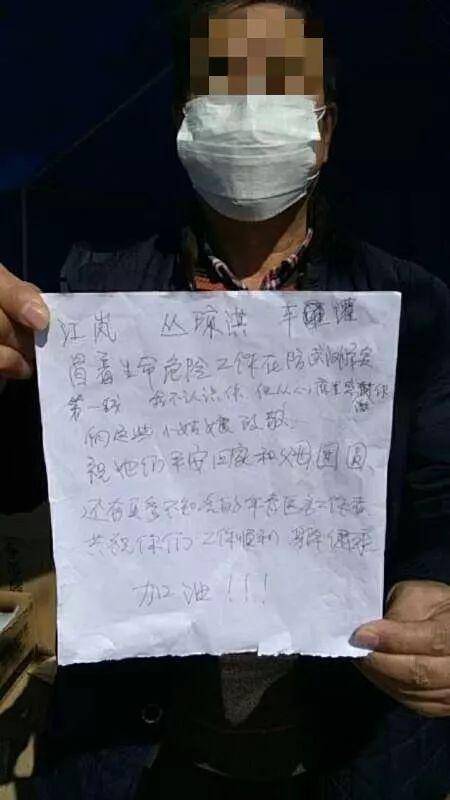 江岚 丛琼滋 车
冒着生命危险工作在防
第一线 我不认识你 但从心底里感谢你
们这些小姑娘致敬
祝她们平安回家和父母团圆、
还有更多不知名的年青医务工作者
共祝你们工作顺利 身体健康
加油!!!